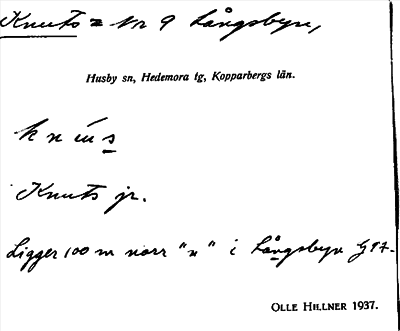 Knuts = Nr 9 Långsbyn,
Husby sn, Hedemora tg, Kopparbergs län.
Knuts jr.
Ligger 100 m norr "n" i Långsbyn
OLLE HILLNER 1937.